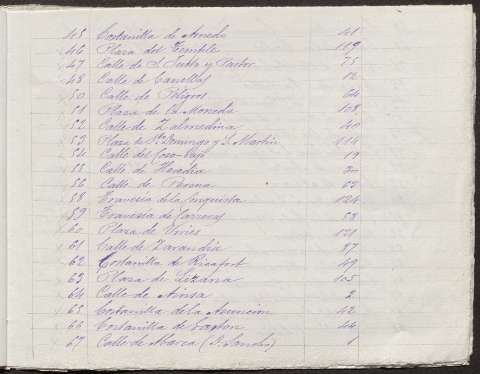 45 Costanilla de Arnedo 41
46 Plaza del Temple 119
47 Calle de S. Justo y Pastor 75
48 Calle de Canellas 12
50 Calle de Peligros 64
51 Plaza de la Moneda 108
52 Calle de Zalmedina 40
53 Plaza de Sto Domingo y S. Martin 114
54 Calle del Coso-bajo 19
55 Calle de Heredia
56 Calle de Perena
58 Travesia de la Conquista 124
59 Travesia de Carreras 58
60 Plaza de Urries 121
61 Calle de Zarandia 87
62 Costanilla de Ricafort 49
63 Plaza de Lizana 105
64 Calle de Ainsa 2
65 Costanilla de la Asuncion 42
66 Costanilla de Gaston 44
67 Calle de Abarca (S. Sancho) 1